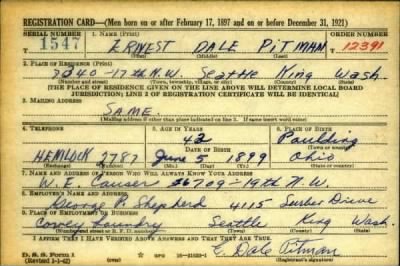 REGISTRATION CARD—(Men born on or after February 17, 1897 and on or before December 31, 1921)
SERIAL NUMBER 1. NAME (Print) ORDER NUMBER
T 1547 ERNEST DALE PITMAN 12391
(First) (Middle) (Last)
2. PLACE OF RESIDENCE (Print)
7340-17th N.W. Seattle King Wash.
(Number and street) (Town, township, village, or city) (County) (State)
[THE PLACE OF RESIDENCE GIVEN ON THE LINE ABOVE WILL DETERMINE LOCAL BOARD
JURISDICTION; LINE 2 OF REGISTRATION CERTIFICATE WILL BE IDENTICAL]
3. MAILING ADDRESS
SAME.
[Mailing address if other than place indicated on line 2. If same insert word same]
4. TELEPHONE 5. AGE IN YEARS 6. PLACE OF BIRTH
42 Paulding
DATE OF BIRTH (Town or county)
HEMLOCK 2787 June 5 1899 Ohio
(Exchange) (Number) (Mo.) (Day) (Yr.) (State or country)
7. NAME AND ADDRESS OF PERSON WHO WILL ALWAYS KNOW YOUR ADDRESS
W. E. 6709-19th N.W.
8. EMPLOYER'S NAME AND ADDRESS
George P. Shepherd 4115 Surber Drive
9. PLACE OF EMPLOYMENT OR BUSINESS
Laundry Seattle King Wash.
(Number and street or R. F. D. number) (Town) (County) (State)
I AFFIRM THAT I HAVE VERIFIED ABOVE ANSWERS AND THAT THEY ARE TRUE.
D. S. S. Form 1
(Revised 1-1-42) (over) E. Dale Pitman
(Registrant's signature)